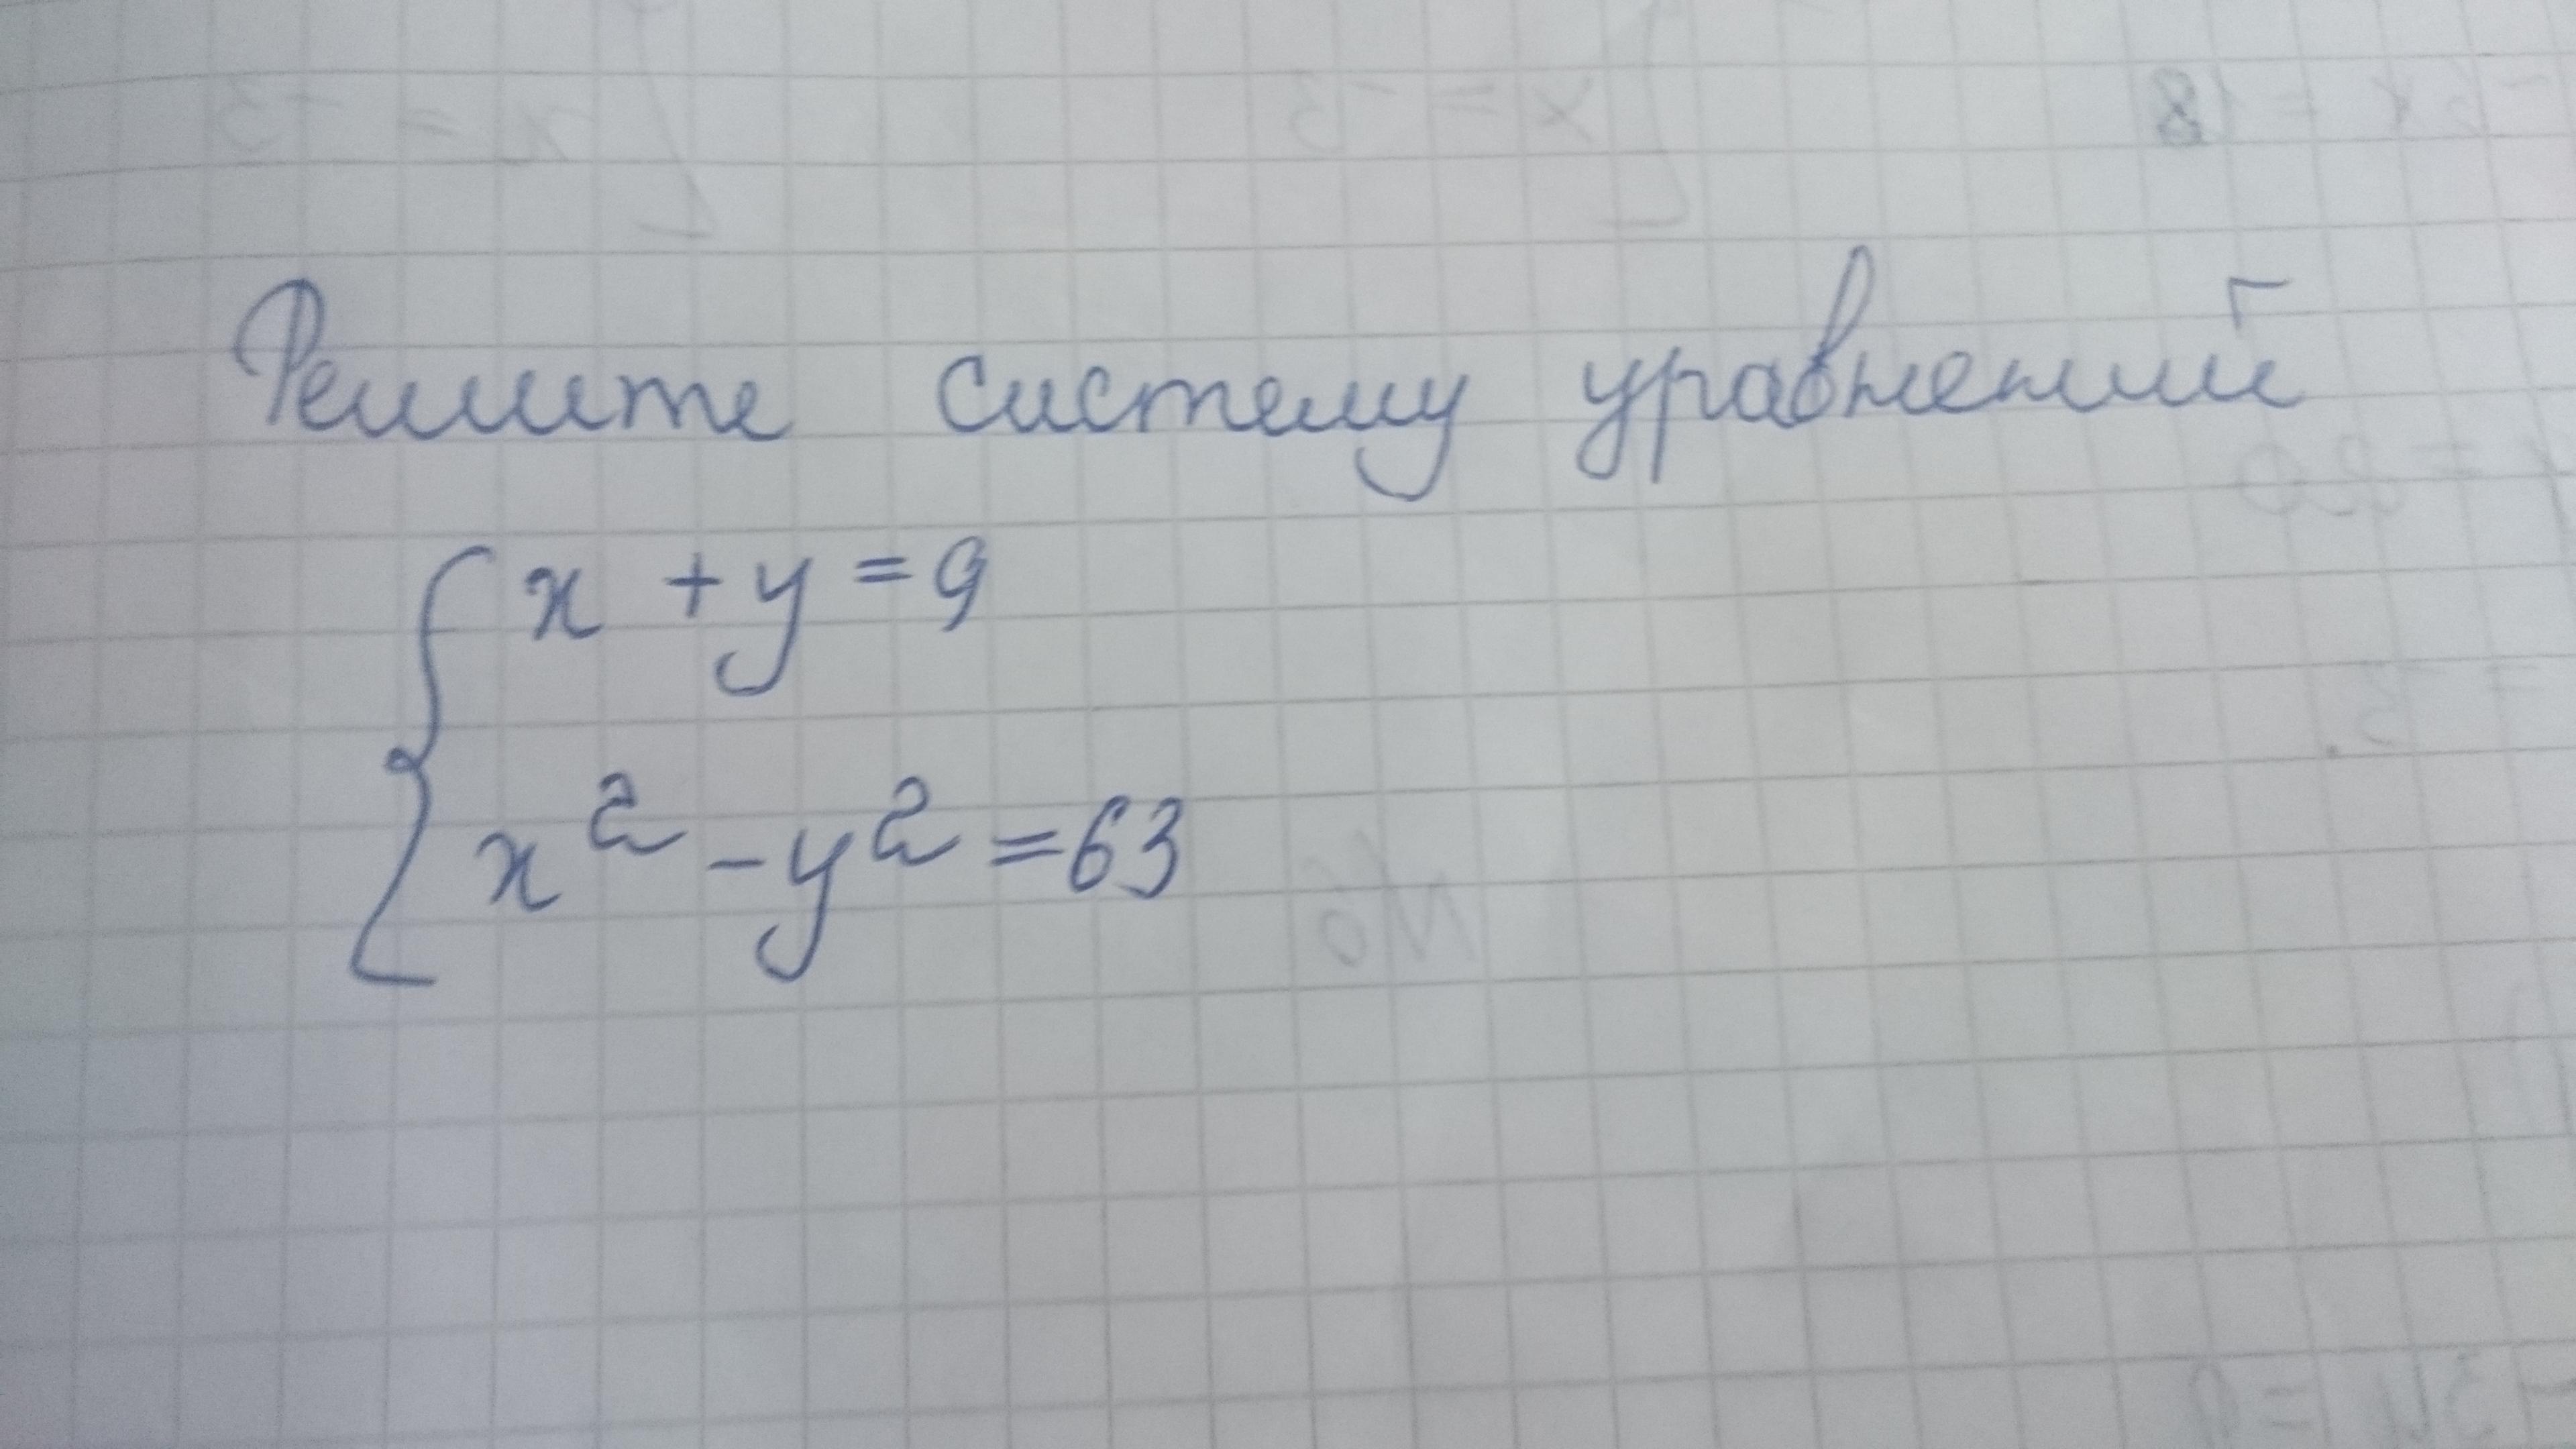 Решите систему уравнений
x + y = 9
x² - y² = 63